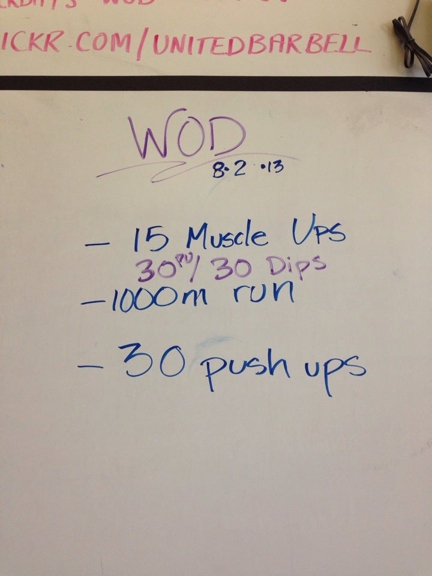 WOD
ICKR.COM/UNITEDBARBELL
WOD
8•2•13
- 15 Muscle Ups
30 PU/ 30 Dips
- 1000m run
- 30 push ups